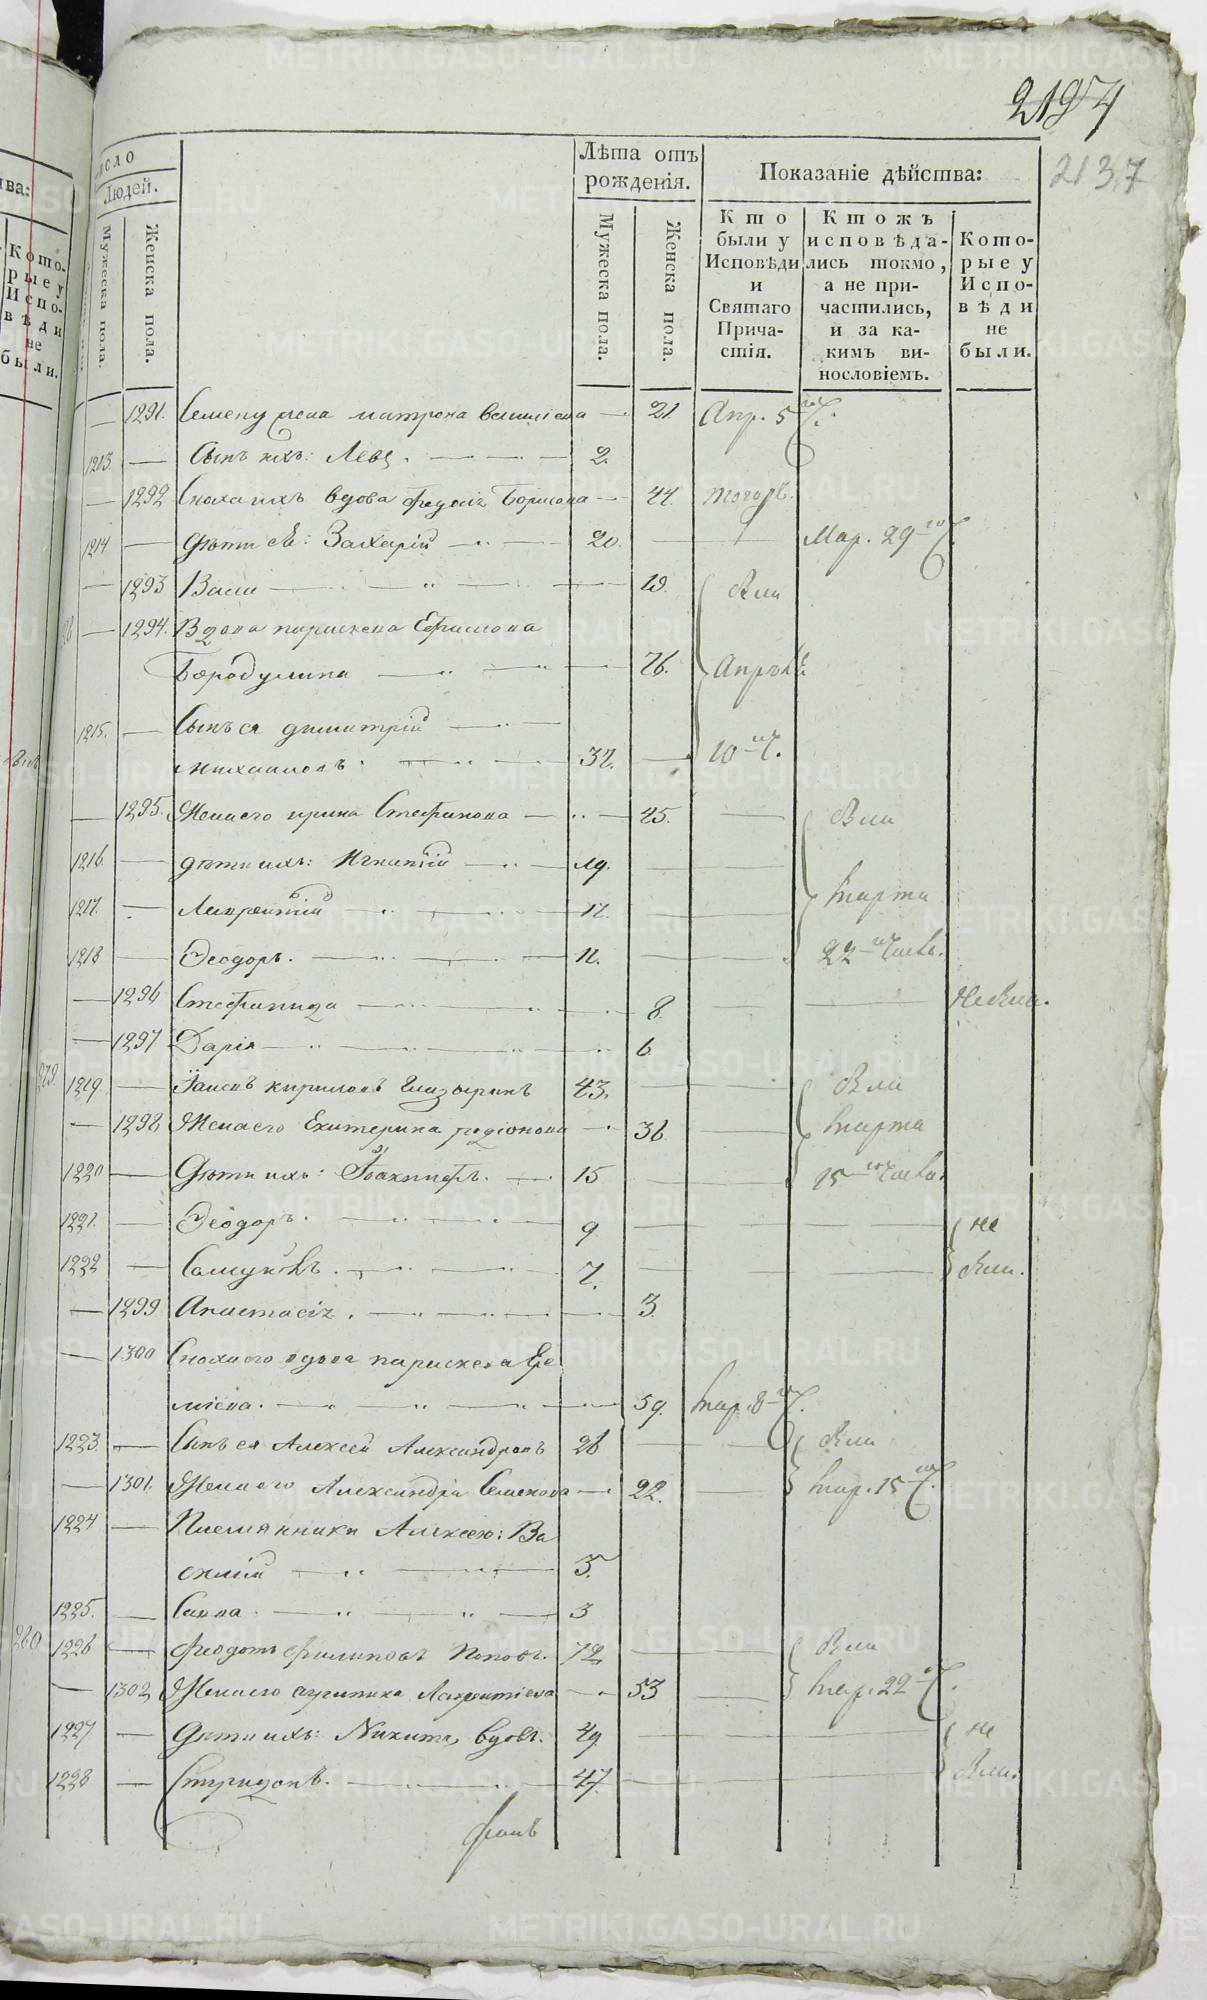 2194
2137
число
Людей.
Мужеска пола.
Женска пола.
Лѣта отъ рожденія.
Мужеска пола.
Женска пола.
Показаніе дѣйства:
Кто были у Исповѣди и Святаго Прича-стія.
Ктожъ исповѣда-лись токмо, а не при-частились, и за ка-кимъ ви-нословіемъ.
Кото-рые у Испо-вѣди не были.
— 1291. Семену жена матрона василіева — 21. Апр. 5
1213. — Сынъ ихъ: Левъ. — 2.
— 1292 Сноха ихъ вдова Федосія Борисова — 44.
1214 — Дѣти ея: Захарій — 20. — Мар. 29
— 1293 Васса — 19. Были
— 1294. Вдова парискева Ефимова
Бородулина — 76. Апрѣля
1215. — Сынъ ея димитрій
михаиловъ. 37. — 10
— 1295. Жена его ирина Стефанова — 45. — Были
1216 — дѣти ихъ: Игнатій — 19. —
марта
1217. — Лаврентій — 17. —
1218 — Ѳеодоръ. — 11. — 22
— 1296 Стефанида — 8. — Небыли.
— 1297 Дарія — 6
279. 1219. — кириловъ Глазыринъ 43. — Были
— 1298 Жена его Екатерина родіонова — 36 — марта
1220 — Дѣти ихъ: 15 — 15
1221. — Ѳеодоръ. — 9 — не
1222 — 7. — были.
— 1299 Анастасія. — 3.
— 1300 Сноха его вдова парискева Ере
міева. — 59. мар. 8
1223. — Сынъ ея Алексей Александровъ 26 — Были
— 1301. Жена его Александра Семенова — 22. — мар. 15
1224 — Племянники Алексею: Ва
силій — 5.
1225. — Савва. — 3
280 1226 — Феодотъ филиповъ поповъ. 72 — Были
— 1302 Жена его агрипина Лаврентіева — 53 — мар. 22
1227. — Дѣти ихъ: Никита, вдовъ. 49 — не
1228 — Спиридонъ. — 47. — были.